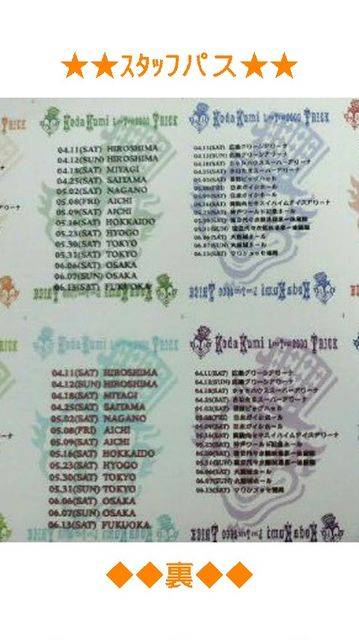 ★★ｽﾀｯﾌパス★★
TRICK
Koda Kumi Live Tour 2009 TRICK
04.11(SAT) HIROSHIMA
04.12(SUN) HIROSHIMA
04.18(SAT) MIYAGI
04.25(SAT) SAITAMA
05.02(SAT) NAGANO
05.08(FRI) AICHI
05.09(SAT) AICHI
05.16(SAT) HOKKAIDO
05.23(SAT) HYOGO
05.30(SAT) TOKYO
05.31(SUN) TOKYO
06.06(SAT) OSAKA
06.07(SUN) OSAKA
06.13(SAT) FUKUOKA
Koda Kumi Live Tour 2009 TRICK
04.11(SAT) 広島グリーンアリーナ
04.12(SUN) 広島グリーンアリーナ
04.18(SAT)
04.25(SAT) さいたまスーパーアリーナ
05.02(SAT) ビッグハット
05.08(FRI) 日本ガイシホール
05.09(SAT) 日本ガイシホール
05.16(SAT)
05.23(SAT) ワールド記念ホール
05.30(SAT) 国立代々木競技場第一体育館
05.31(SUN) 国立代々木競技場第一体育館
06.06(SAT) 大阪城ホール
06.07(SUN) 大阪城ホール
06.13(SAT) マリンメッセ福岡
Koda Kumi Live Tour 2009 TRICK
04.11(SAT) HIROSHIMA
04.12(SUN) HIROSHIMA
04.18(SAT) MIYAGI
04.25(SAT) SAITAMA
05.02(SAT) NAGANO
05.08(FRI) AICHI
05.09(SAT) AICHI
05.16(SAT) HOKKAIDO
05.23(SAT) HYOGO
05.30(SAT) TOKYO
05.31(SUN) TOKYO
06.06(SAT) OSAKA
06.07(SUN) OSAKA
06.13(SAT) FUKUOKA
Koda Kumi Live Tour 2009 TRICK
04.11(SAT) 広島グリーンアリーナ
04.12(SUN) 広島グリーンアリーナ
04.18(SAT)
04.25(SAT) さいたまスーパーアリーナ
05.02(SAT) ビッグハット
05.08(FRI) 日本ガイシホール
05.09(SAT) 日本ガイシホール
05.16(SAT)
05.23(SAT) ワールド記念ホール
05.30(SAT) 国立代々木競技場第一体育館
05.31(SUN) 国立代々木競技場第一体育館
06.06(SAT) 大阪城ホール
06.07(SUN) 大阪城ホール
06.13(SAT) マリンメッセ福岡
◆◆裏◆◆